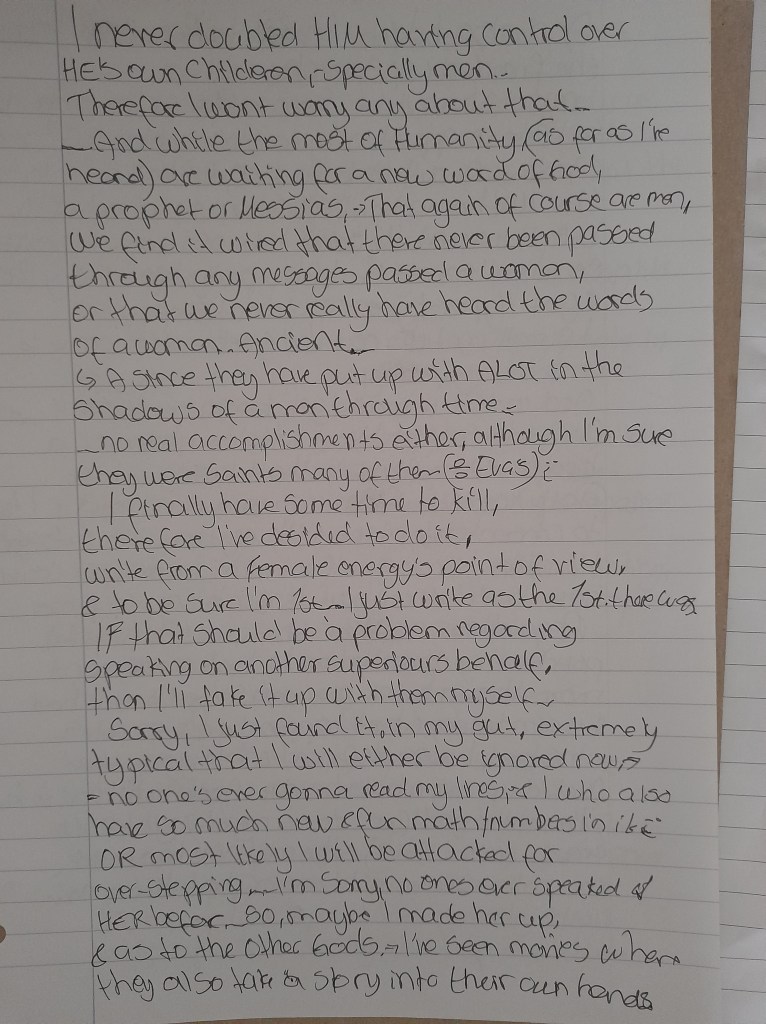 I never doubted HIM having control over
HE's own Childeren, - specially men..
Therefore I wont worry any about that -
_ And while the most of Humanity (as far as I've
heard) are waiting for a new word of God,
a prophet or Messias, → That again of course are men,
We find it wired that there never been passed
through any messages passed a woman,
or that we never really have heard the words
of a woman. Ancient. -
↳ A since they have put up with ALOT in the
Shadows of a man through time -
_ no real accomplishments either, although I'm sure
they were Saints many of them (& Evas) :
I finally have some time to kill,
therefore I've desided to do it,
write from a female energy's point of view,
& to be sure I'm 1st - I just write as the 1st. there was
IF that should be a problem regarding
speaking on another superiours behalf,
then I'll take it up with them myself ~
Sorry, I just found it, in my gut, extremely
typical that I will either be ignored now, →
= no one's ever gonna read my lines, & I who also
have so much new & fun math/numbers in it :
OR most likely I will be attacked for
over-stepping _ I'm sorry, no ones ever speaked of
HER befor - So, maybe I made her up,
& as to the other Gods → I've seen movies where
they also take a story into their own hands